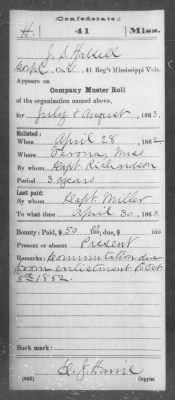 (Confederate.)
H 41 Miss.
J. S. Halsell
Corpl, Co. , 41 Reg't Mississippi Vols.
Appears on
Company Muster Roll
of the organization named above,
for July & August, 1863.
Enlisted:
When April 28, 1862
Where Verona, Miss
By whom Capt. Richardson
Period 3 Years
Last paid:
By whom Capt. Miller
To what time April 30, 1863.
Bounty: Paid, $ 50 ; due, $ 100
Present or absent Present
Remarks: Commutation due
from enlistment to Oct
8th 1862.
Book mark:
(642) Copyist.